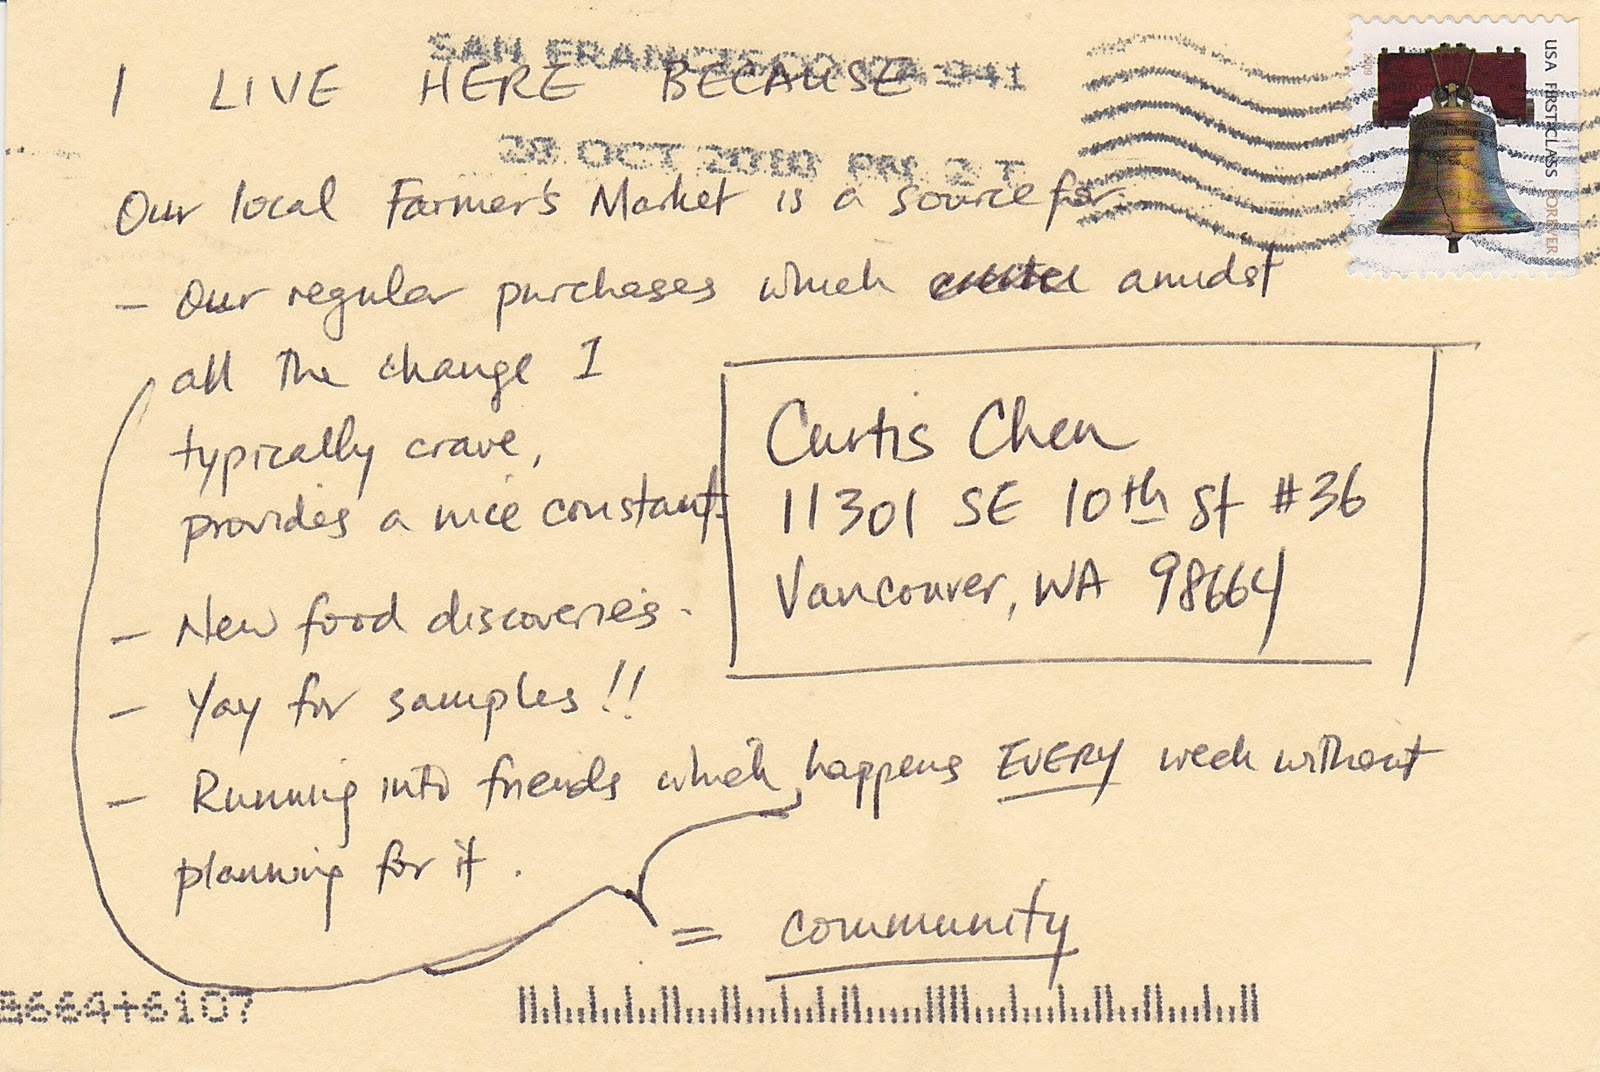 SAN FRANCISCO CA 941
I LIVE HERE BECAUSE
28 OCT 2010 PM 2 T
USA FIRST-CLASS FOREVER
Our local Farmer's Market is a source for:
- Our regular purchases which amidst
all the change I
typically crave,
provides a nice constant.
Curtis Chen
11301 SE 10th St #36
Vancouver, WA 98664
- New food discoveries.
- Yay for samples!!
- Running into friends which happens EVERY week without
planning for it.
= community
8664+6107